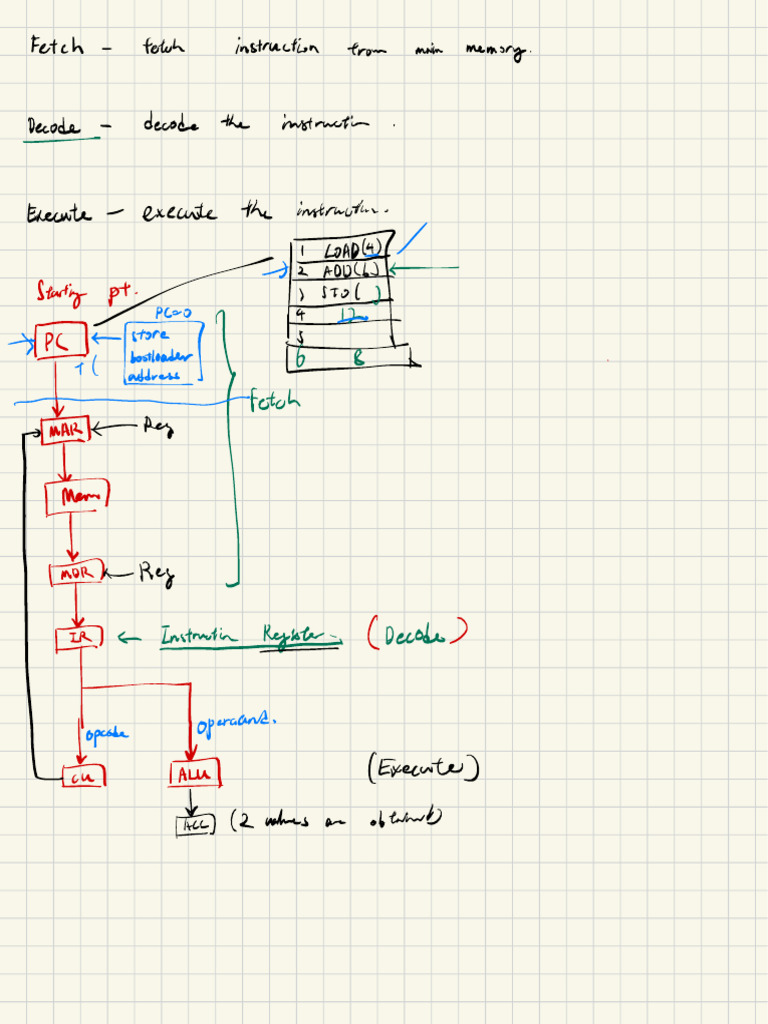 Fetch - fetch instruction from main memory.
Decode - decode the instruction.
Execute - execute the instruction.
1 LOAD(4)
2 ADD(6)
3 STO( )
4 12
5
6 8
Starting pt.
PC=0
PC
store
bootloader
address
Fetch
MAR
Reg
Mem
MDR
Reg
IR
Instruction Register
(Decode)
opcode
operand.
CU
ALU
(Execute)
ACC
(2 values are obtained)